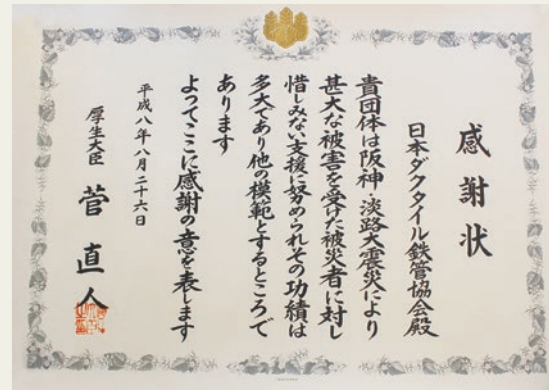 感謝状
日本ダクタイル鉄管協会殿
貴団体は阪神・淡路大震災により
甚大な被害を受けた被災者に対し
惜しみない支援に努められその功績は
多大であり他の模範とするところで
あります
よってここに感謝の意を表します
平成八年八月二十六日
厚生大臣 菅直人